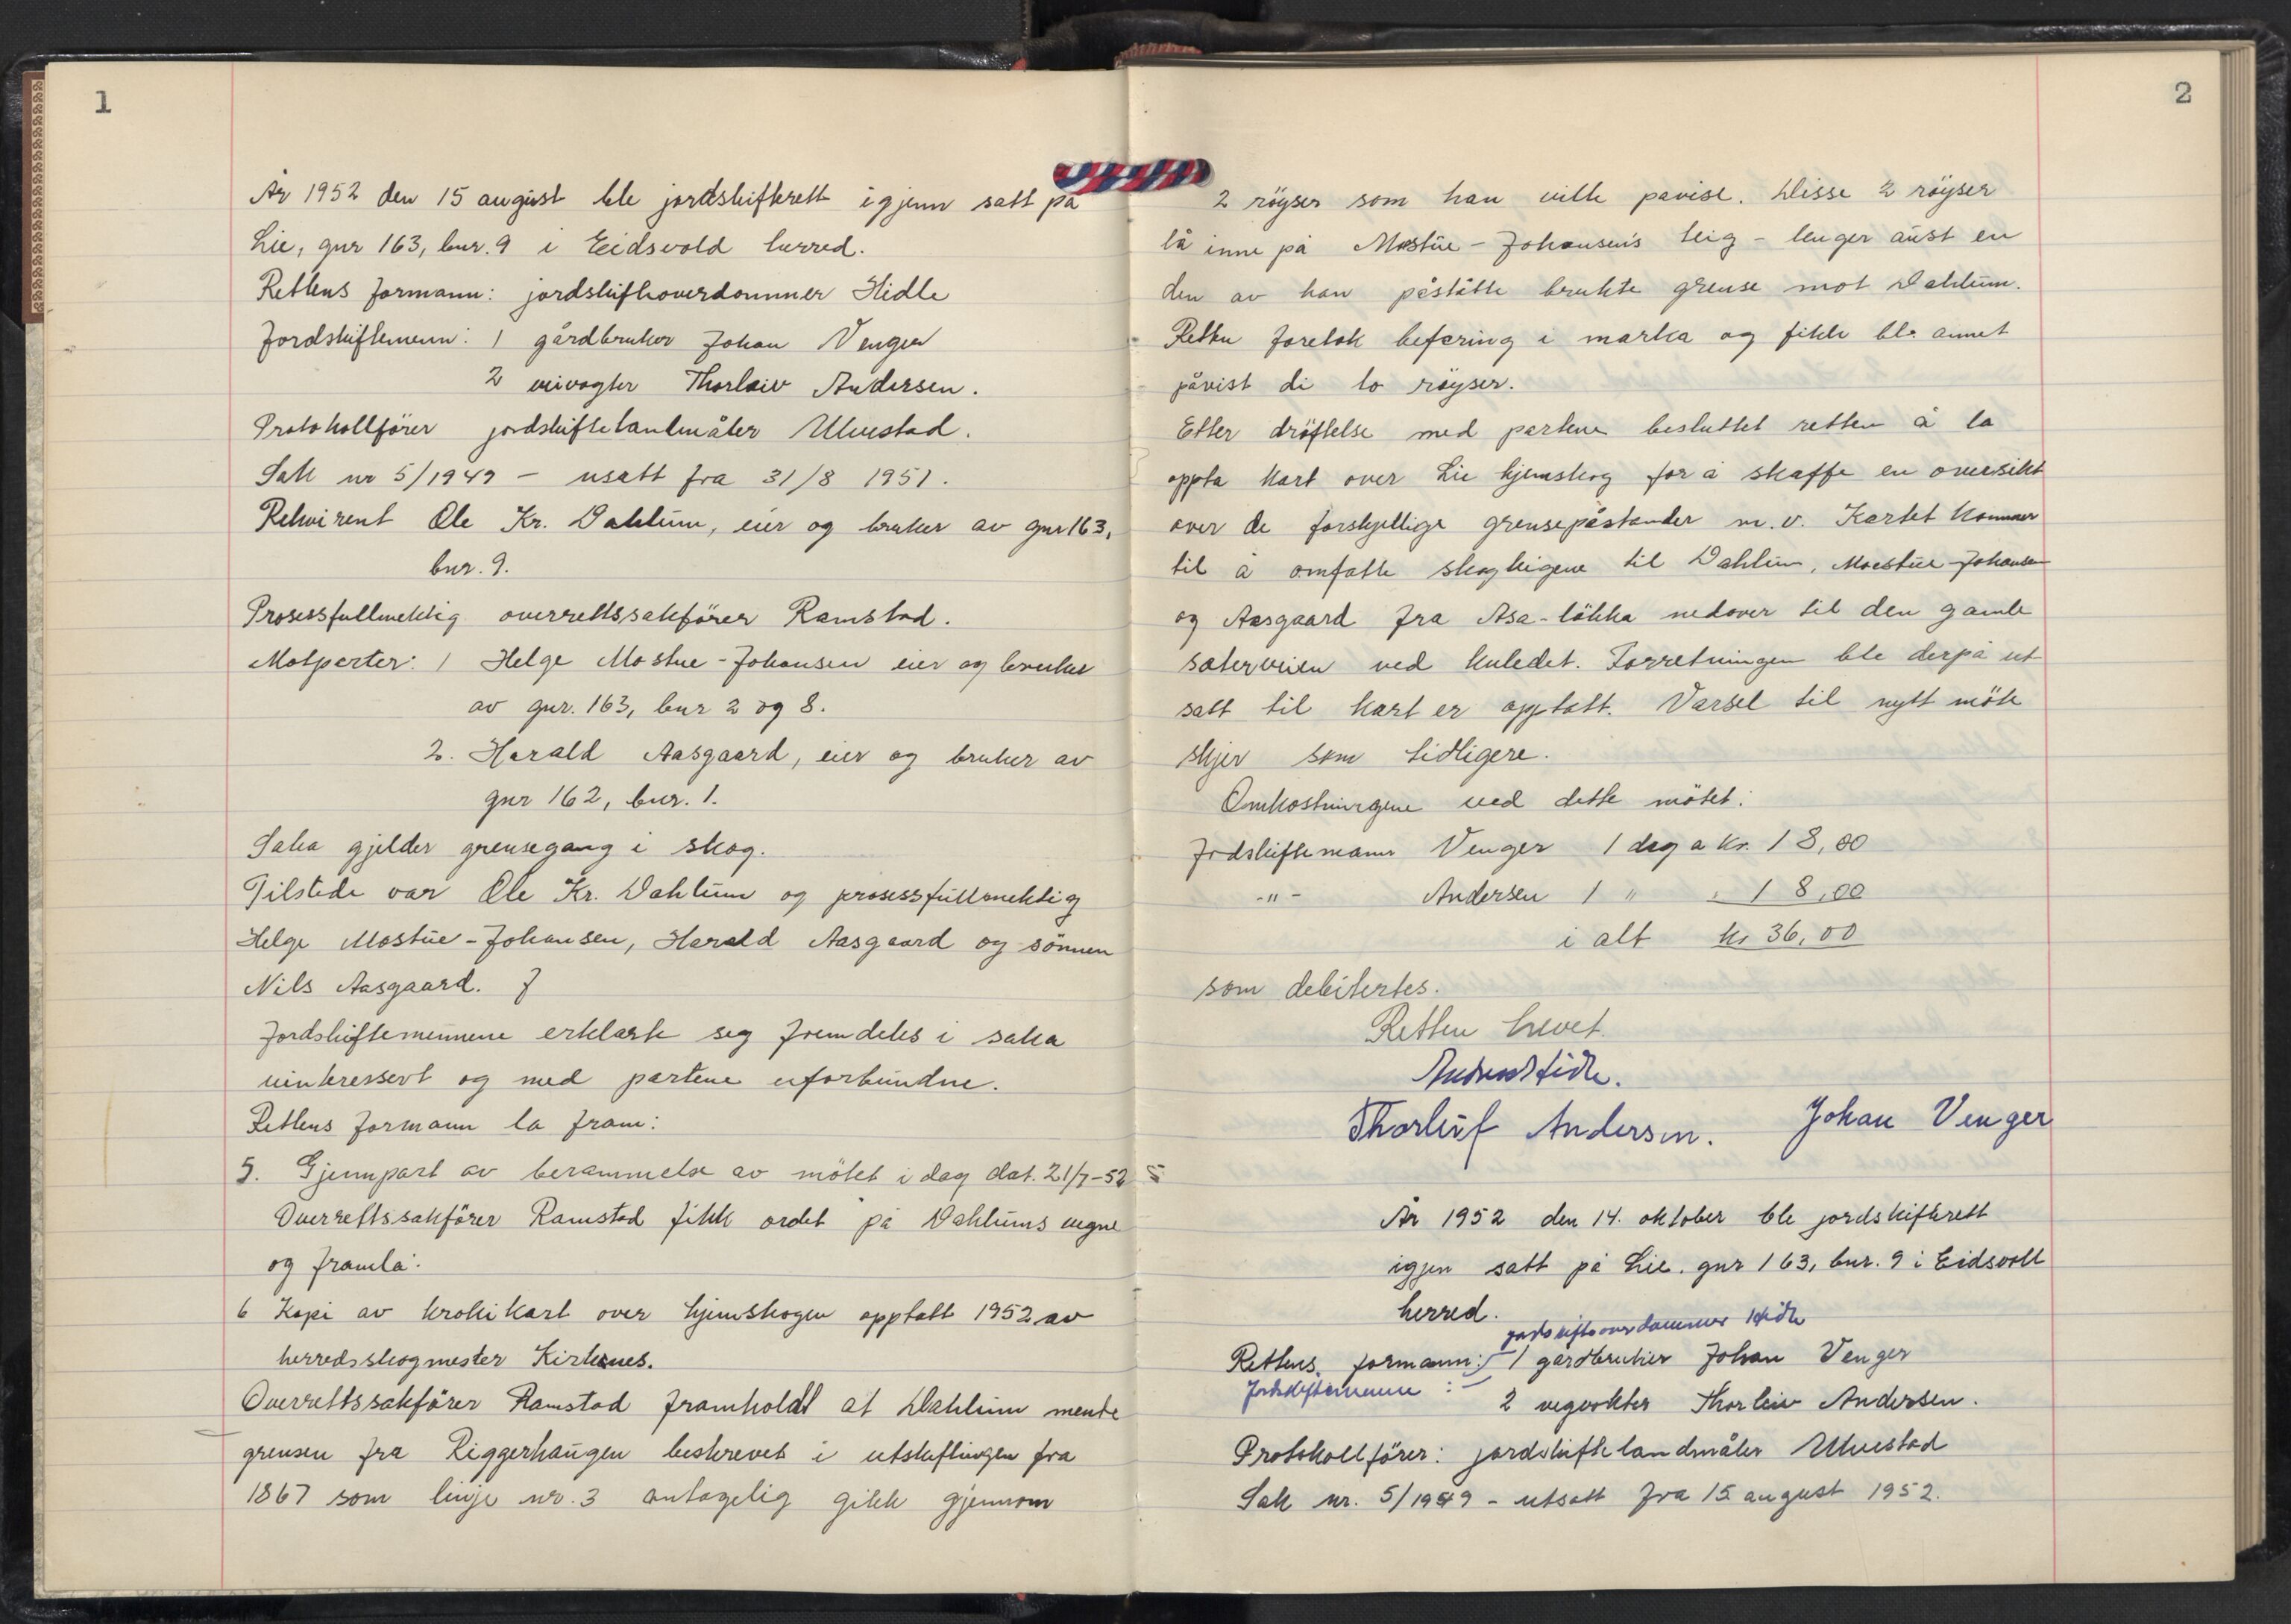 1
År 1952 den 15 august ble jordskifterett igjenn satt på
Lie, gnr 163, bnr. 9 i Eidsvold herred.
Rettens formann: jordskifteoverdommer Hidle
Jordskiftemenn: 1 gårdbruker Johan Venger
2 veivogter Thorleiv Andersen.
Protokollfører jordskiftelantmåler Ulvestad.
Sak nr 5/1949 – usatt fra 31/8 1951.
Rekvirent Ole Kr. Dahlum, eier og bruker av gnr 163,
bnr. 9.
Prosessfullmektig overrettssakfører Ramstad.
Motparter: 1 Helge Mostue-Johansen eier og bruker
av gnr. 163, bnr 2 og 8.
2. Harald Aasgaard, eier og bruker av
gnr 162, bnr. 1.
Saka gjelder grensegang i skog.
Tilstede var Ole Kr. Dahlum og prosessfullmektig
Helge Mostue-Johansen, Harald Aasgaard og sønnen
Nils Aasgaard.
Jordskiftemennene erklærte seg fremdeles i saka
uinteressert og med partene uforbundne.
Rettens formann la fram:
5. Gjennpart av berammelse av møtet i dag dat. 21/7-52 5
Overrettssakfører Ramstad fikk ordet på Dahlums vegne
og framla:
6 Kopi av krokikart over hjemskogen opptatt 1952 av
herredsskogmester Kirkenes.
Overrettssakfører Ramstad framholdt at Dahlum mente
grensen fra Riggerhaugen beskrevet i utskiftingen fra
1867 som linje nr. 3 antagelig gikk gjennom
2
2 røyser som han ville påvise. Disse 2 røyser
lå inne på Mostue-Johansens teig – lenger aust en
den av han påståtte brukte grense mot Dahlum.
Retten foretok befaring i marka og fikk bl. annet
påvist di to røyser.
Etter drøftelse med partene besluttet retten å la
oppta kart over Lie hjemskog for å skaffe en oversikt
over de forskjellige grensepåstander m.v. Kartet kommer
til å omfatte skogteigene til Dahlum, Moestue-Johansen
og Aasgaard fra Asa-løkka nedover til den gamle
sæterveien ved kuledet. Forretningen ble derpå ut
satt til kart er opptatt. Varsel til nytt møte
skjer som tidligere.
Omkostningene ved dette møtet:
Jordskiftemann Venger 1 dag a kr. 18,00
-"- Andersen 1 " " 18,00
i alt kr 36,00
som debitertes.
Retten hevet.
Hidle.
Thorleif Andersen. Johan Venger
År 1952 den 14. oktober ble jordskifterett
iggen satt på Lie. gnr 163, bnr. 9 i Eidsvoll
herred.
jordskifteoverdommer Hidle
Rettens formann: 1 gårdbruker Johan Venger
Jordskiftemenn :
2 vegvokter Thorleiv Andersen.
Protokollfører: jordskiftelandmåler Ulvestad
Sak nr. 5/1949 – utsatt fra 15 august 1952.